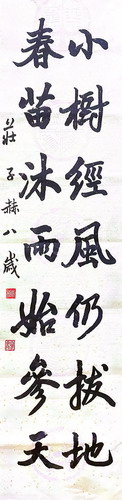 小樹經風仍拔地
春苗沐雨始參天
莊子赫八歲